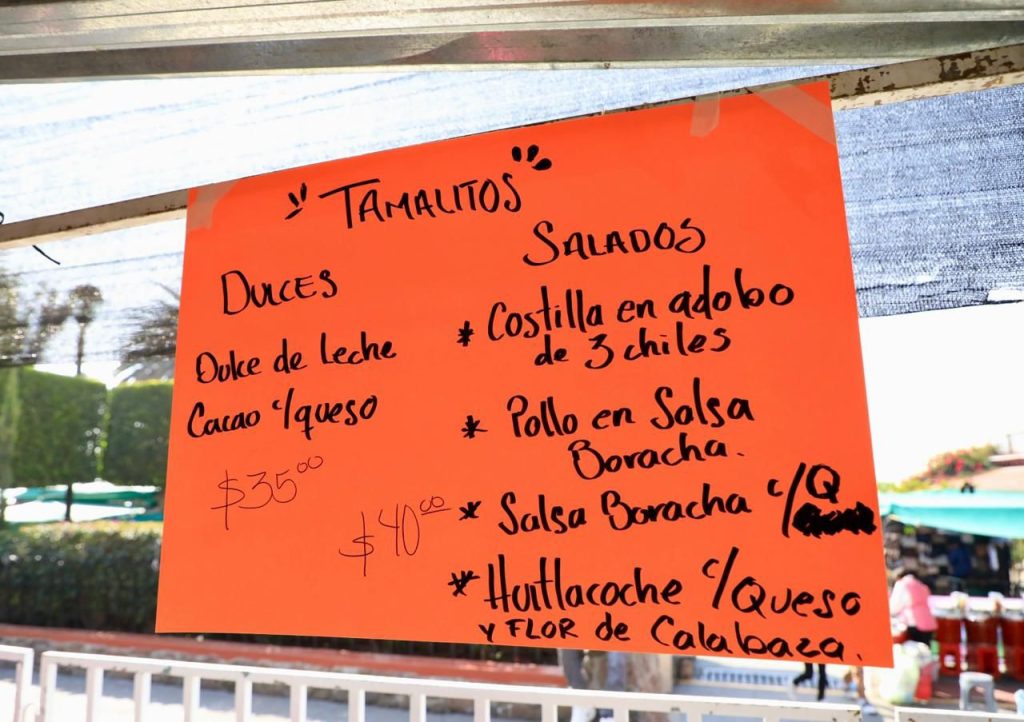 TAMALITOS
DULCES
Dulce de Leche
Cacao c/queso
$35.00
SALADOS
* Costilla en adobo
de 3 chiles
* Pollo en Salsa
Boracha.
* Salsa Boracha c/Q
$40.00
* Huitlacoche c/Queso
y FLOR de Calabaza.